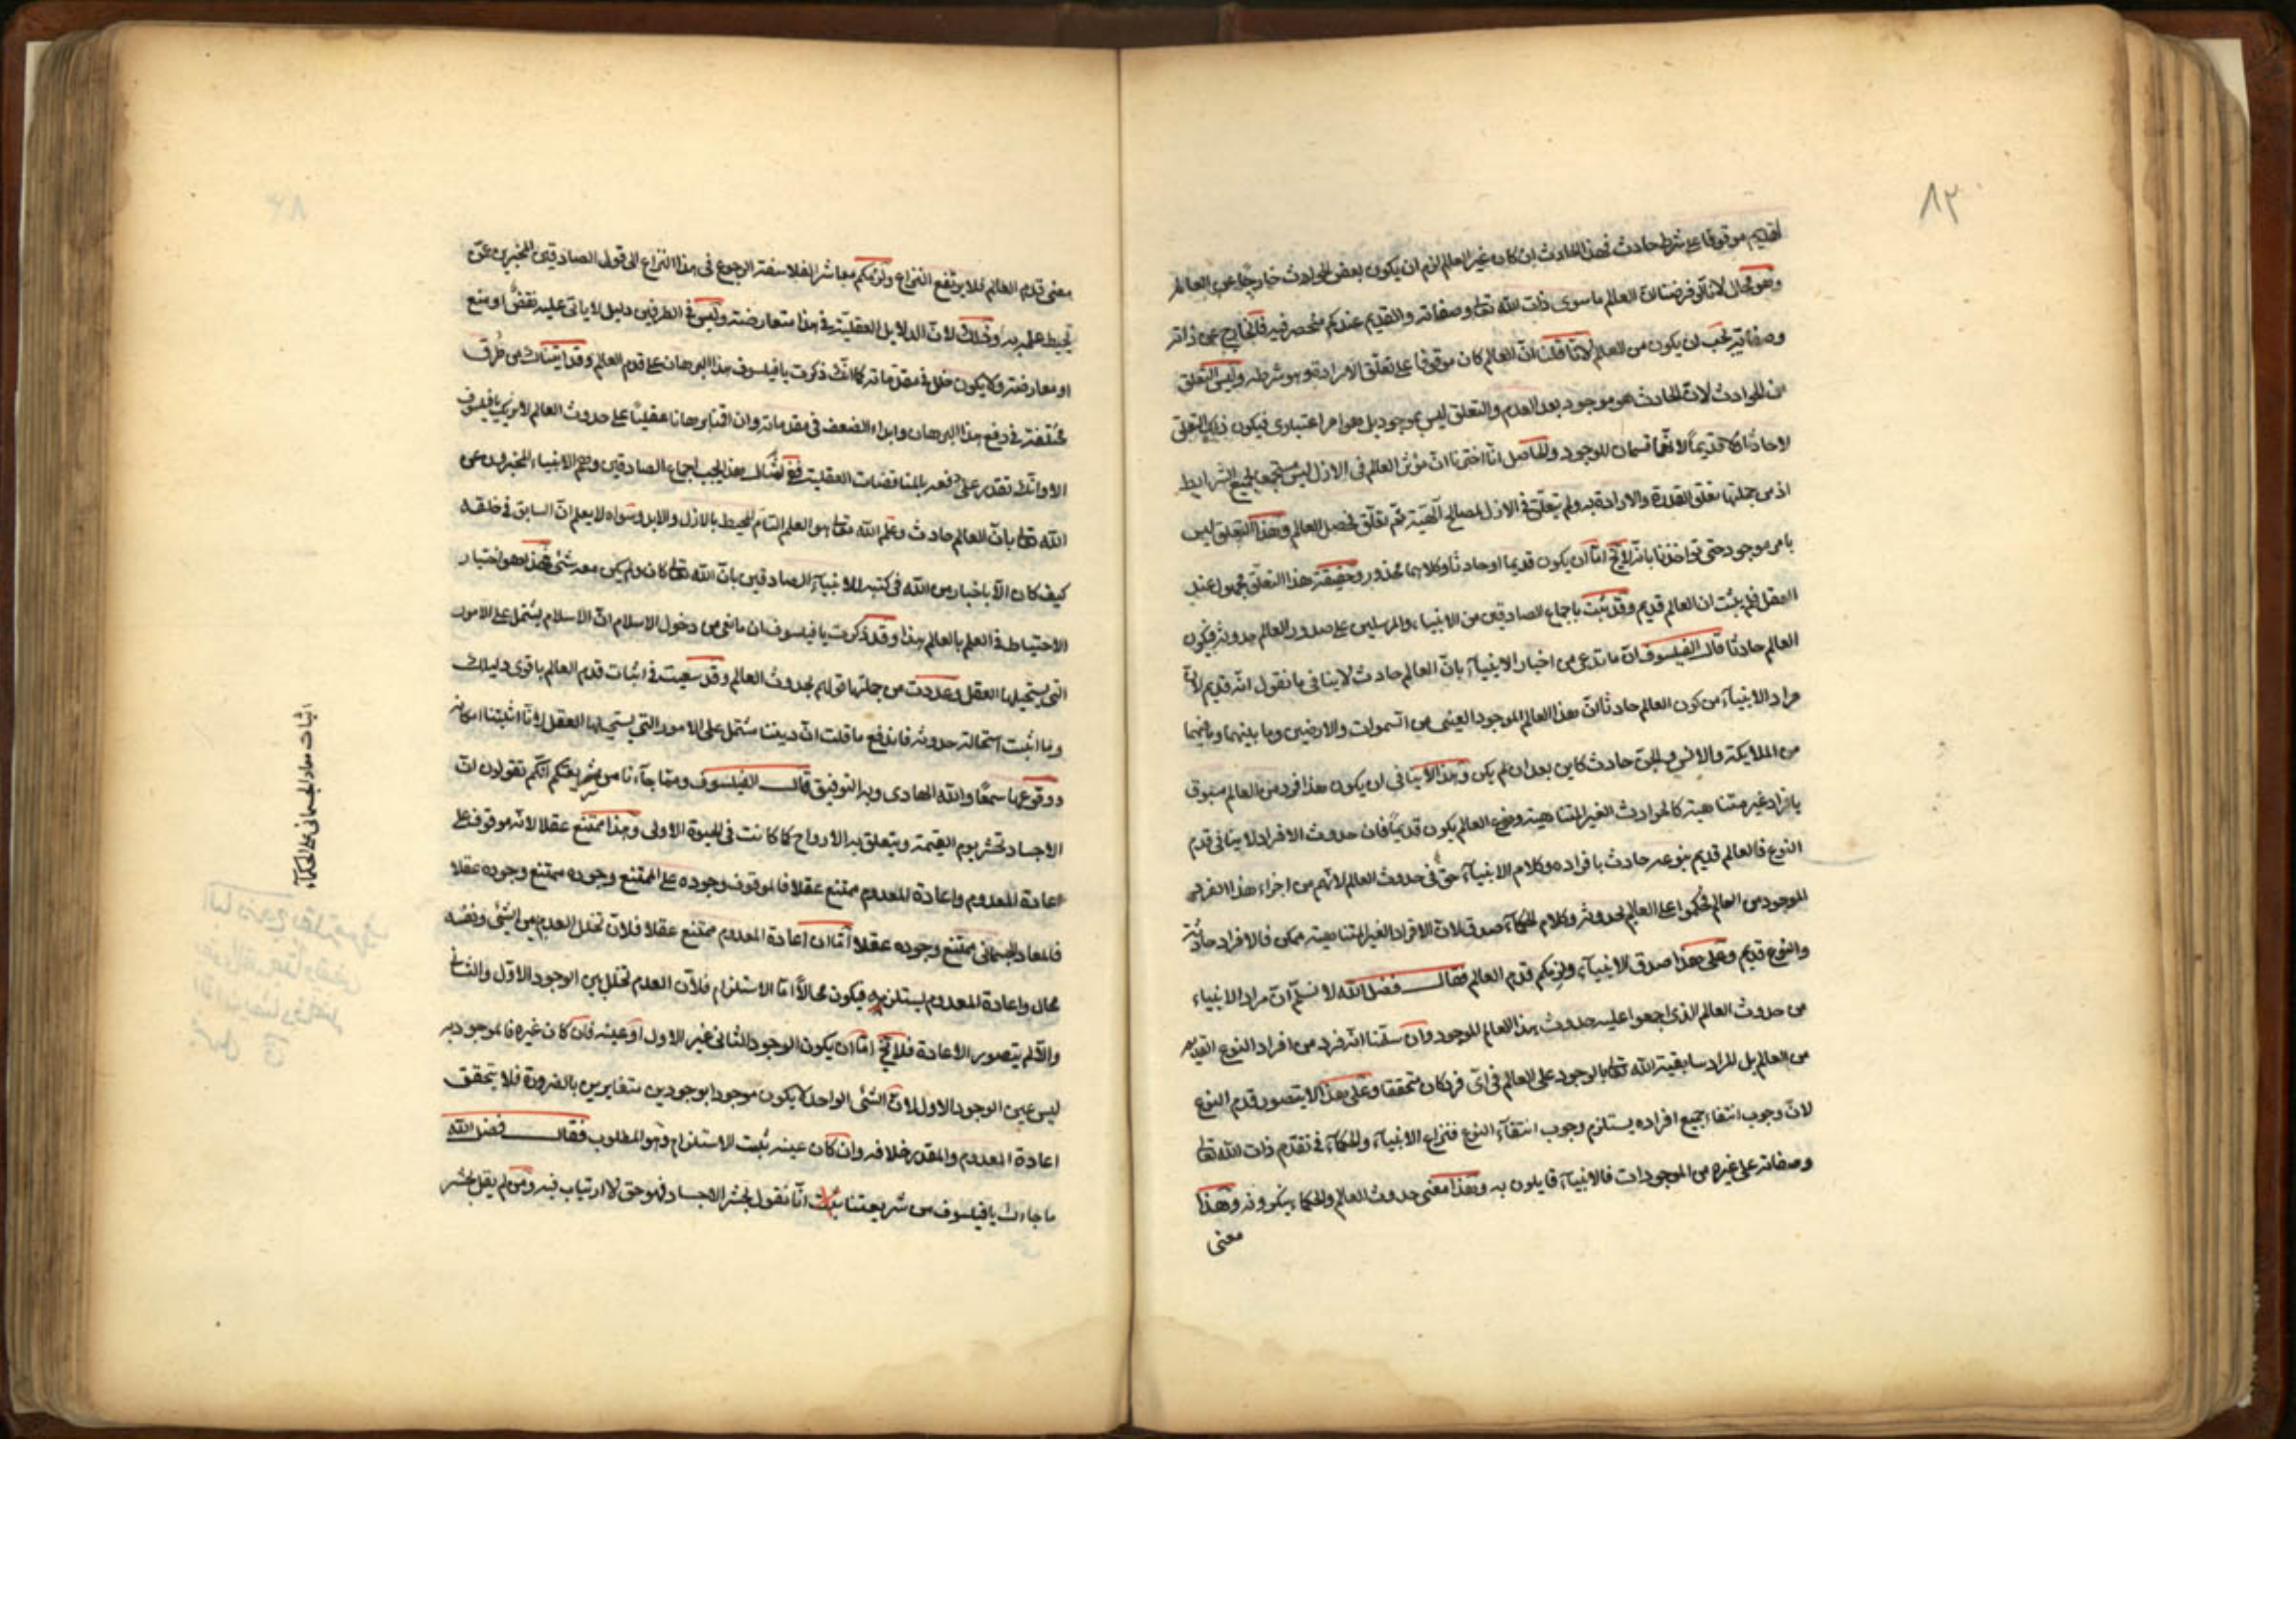 ٨٢
القديم موقوفا على شرط حادث فهذا الحادث ان كان غير العالم لزم ان يكون بعض الحوادث خارجا عن العالم
وهو محال لانا لو فرضنا ان العالم ما سوى ذات الله تعا وصفاته والقديم عندكم منحصر فيه فالخارج عن ذاته
وصفاته يجب ان يكون من العالم لانا قلنا ان العالم كان موقوفا على تعلق الارادة وهو شرطه وليس التعلق
من الحوادث لان الحادث هو موجود بعد العدم والتعلق ليس بموجود بل هو امر اعتبارى فيكون ذلك التعلق
لا حادثا ولا قديما لانهما قسمان للموجود والحاصل انا اخترنا ان مؤثر العالم فى الازل ليس مستجمعا لجميع الشرايط
اذ من جملتها تعلق القدرة والارادة به ولم يتعلق فى الازل لمصالح آلهية ثم تعلق فحصل العالم وهذا التعلق ليس
بامر موجود حتى تواخذنا بانه لا يخ اما ان يكون قديما او حادثا وكلاهما محذور وحقيقة هذا التعلق مجهول عند
العقل فلم يثبت ان العالم قديم وقد ثبت باجماع الصادقين من الانبياء والمرسلين على صدور العالم حدوثه فيكون
العالم حادثا قال الفيلسوف ان ما تدعى من اخبار الانبيآء بانّ العالم حادث لا ينافى ما نقول انه قديم لانّ
مراد الانبيآء من كون العالم حادثا انّ هذا العالم الموجود العينى من السموات والارضين وما بينهما وما فيهما
من الملايكة والانس والجن حادث كاين بعد ان لم يكن وهذا لا ينافى ان يكون هذا فرد من العالم مسبوق
بافراد غير متناهية كالحوادث الغير المتناهية ونوع العالم يكون قديما فان حدوث الافراد لا ينافى قدم
النوع فالعالم قديم بنوعه حادث بافراده وكلام الانبيآء حق فى حدوث العالم لانهم من اجزاء هذا الفرد
الموجود من العالم فحكموا على العالم بحدوثه وكلام الحكمآء صدق لان الافراد الغير المتناهية ممكن فالافراد حادثة
والنوع قديم وعلى هذا صدق الانبيآء ولزمكم قدم العالم فقال فضل الله لا نسلم ان مراد الانبياء
من حدوث العالم الذى اجمعوا عليه حدوث هذا العالم الموجود وان سلمنا انه فرد من افراد النوع القديم
من العالم بل المراد سابقية الله تعا بالوجود على العالم فى اى فرد كان متحققا وعلى هذا لا يتصور قدم النوع
لانّ وجوب انتفاء جميع افراده يستلزم وجوب انتقآء النوع فنزاع الانبيآء والحكمآء فى تقدم ذات الله تعا
وصفاته على غيره من الموجودات فالانبيآء قايلون به وهذا معنى حدوث العالم والحكماء ينكرونه وهذا
معنى
معنى قدم العالم فلا يرتفع النزاع ولزمكم معاشر الفلاسفة الرجوع فى هذا النزاع الى قول الصادقين المخبرين عمّن
يحيط علمه به وذلك لانّ الدلايل العقلية فى هذا متعارضة وليس فى الطرفين دليل لا ياتى عليه نقض او منع
او معارضة ولا يكون خلل فى مقدماته كما انك ذكرت يا فيلسوف هذا البرهان على قدم العالم وقد اتيناك من طرق
مختلفة فى دفع هذا البرهان وابداء الضعف فى مقدماته وان اقمنا برهانا عقليا على حدوث العالم لا يريك يا فيلسوف
الا وانك تقدر على دفعه بالمناقضات العقلية فغ لشك هذا يجب اجماع الصادقين وهم الانبياء المخبرون عن
الله تعا بانّ العالم حادث وعلم الله تعا هو العلم التام المحيط بالازل والابد وسواه لا يعلم انّ السابق فى خلقه
كيف كان الا باخبار من الله فى كتبه للانبيآء الصادقين بانّ الله تعا كان ولم يكن معه شئ فهذا هو اختيار
الاحتياط فى العلم بالعالم هذا وقد ذكرت يا فيلسوف ان مانعى من دخول الاسلام انّ الاسلام يشتمل على الامور
التى يستحيلها العقل وعددت من جملتها قولهم بحدوث العالم وقد سعيت فى اثبات قدم العالم باقوى دليلك
وما اثبت استحالة حدوثه فاندفع ما قلت انّ ديننا مشتمل على الامور التى يستحيلها العقل لانا اثبتنا امكانه
ووقوعها سمعا والله الهادى وبه التوفيق قال الفيلسوف ومما جآءنا من شريعتكم انكم تقولون انّ
الاجساد تحشر يوم القيمة ويتعلق به الارواح كما كانت فى الحيوة الاولى وهذا ممتنع عقلا لانه موقوف على
اعادة المعدوم واعادة المعدوم ممتنع عقلا فالموقوف وجوده على الممتنع وجوده ممتنع وجوده عقلا
فالمعاد الجسمانى ممتنع وجوده عقلا اما ان اعادة المعدوم ممتنع عقلا فلان تخلل العدم بين الشئ ونفسه
محال واعادة المعدوم يستلزمه فيكون محالا اما الاستلزام فلان العدم تخلل بين الوجود الاول والثانى
والا لم يتصور الاعادة فلا يخ اما ان يكون الوجود الثانى غير الاول او عينه فان كان غيره فالموجود به
ليس عين الوجود الاول لان الشئ الواحد لا يكون موجودا بوجودين متغايرين بالضرورة فلا يتحقق
اعادة المعدوم والمقدر خلافه وان كان عينه ثبت الاستلزام وهو المطلوب فقال فضل الله
ما جاءك يا فيلسوف من شريعتنا انا نقول بحشر الاجساد فهو حق لا ارتياب فيه ومن لم يقل بحشر
اثبات معاد الجسمانى على الحكمآء